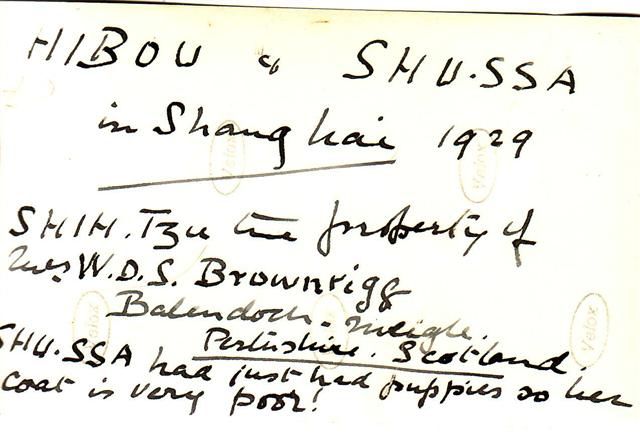 HIBOU & SHU.SSA
in Shanghai 1929
SHIH.Tzu the property of
Mrs W.D.S. Brownrigg
Balendoch. Meigle.
Perthshire. Scotland.
SHU.SSA had just had puppies so her
coat is very poor!
Velox
Velox
Velox
Velox